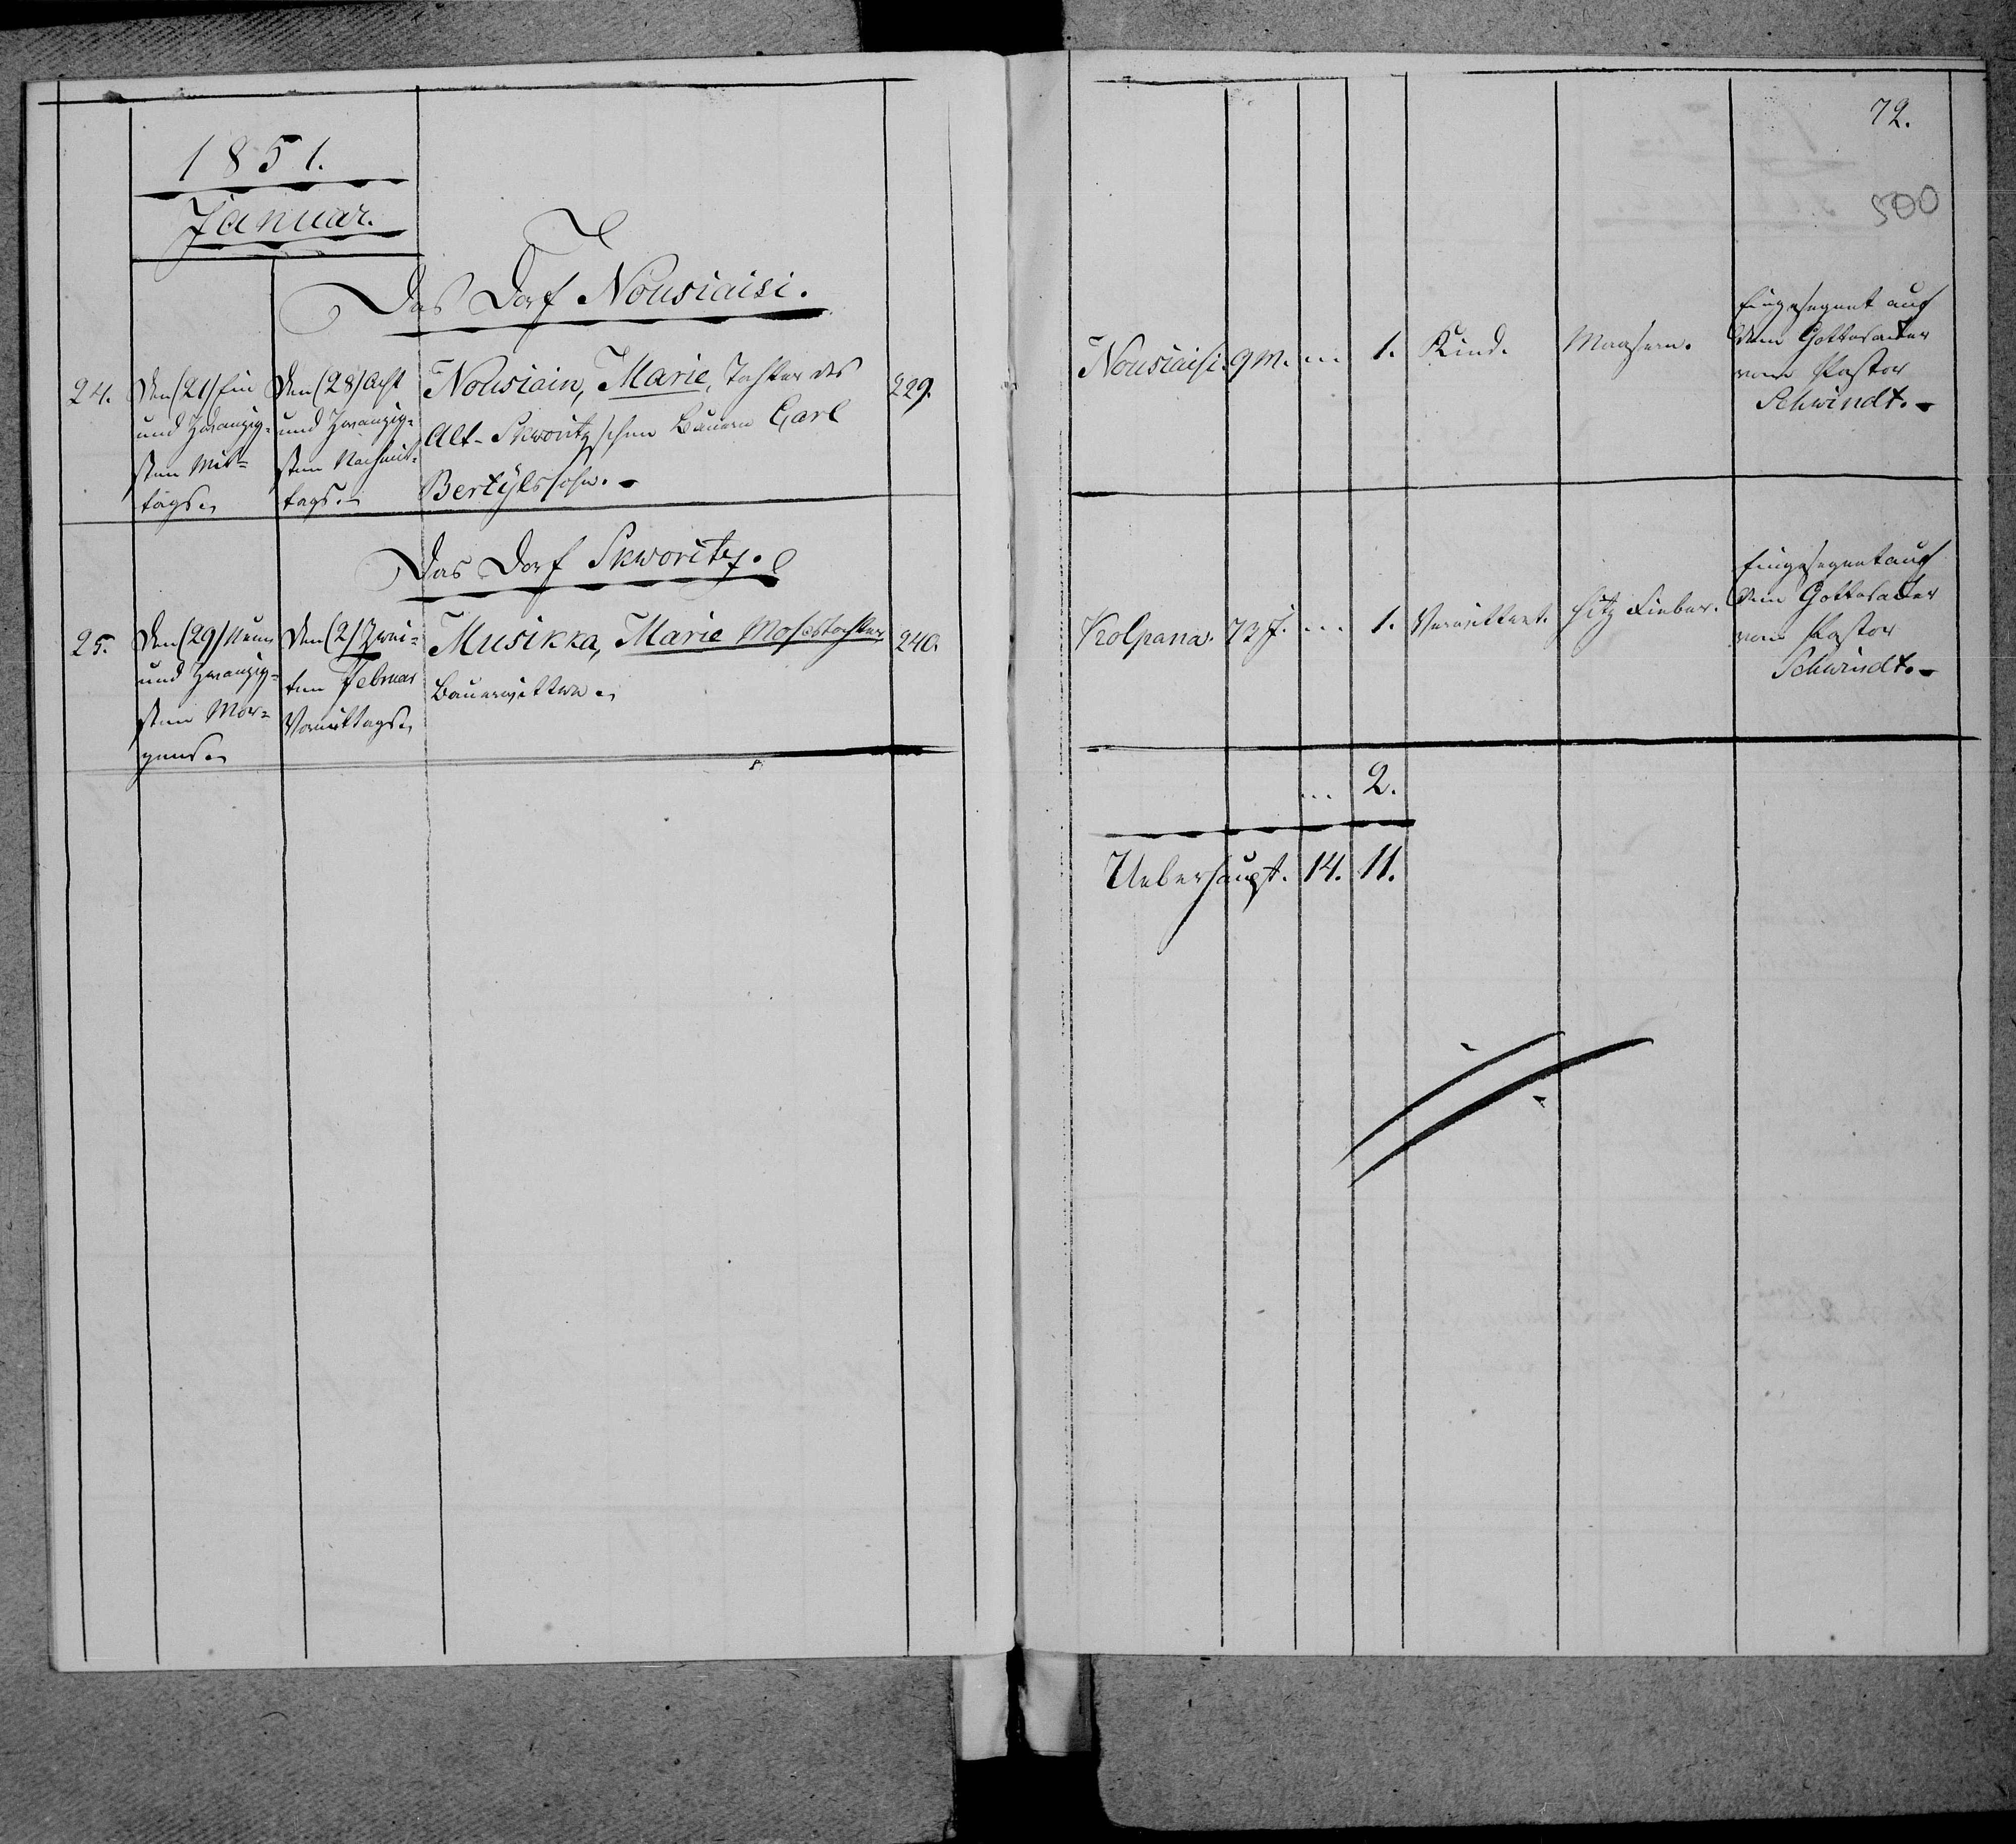 1851.
Januar.
Das Dorf Nousiaisi.
24.
Den (21) Ein
und Zwanzig=
sten Mit=
tags.
Den (28) Acht
und Zwanzig=
sten Nachmit=
tags.
Nousiain, Marie, Tochter des
Alt-Skworitzschen Bauern Carl
Bertilssohn.
229.
Das Dorf Skworitz.
25.
Den (29) Neun
und Zwanzig=
sten Mor=
gens.
Den (2) Zwei=
ten Februar
Vormittags.
Musikka, Marie Mosestochter,
Bauerwittwe.
240.
72.
500
Nousiaisi.
9 M.
...
1.
Kind.
Masern.
Eingesegnet auf
dem Gottesacker
vom Pastor
Schwindt.
Kolpana.
73 J.
...
1.
Verwittwet.
Hitz Fieber.
Eingesegnet auf
dem Gottesacker
vom Pastor
Schwindt.
... 2.
Ueberhaupt. 14. 11.